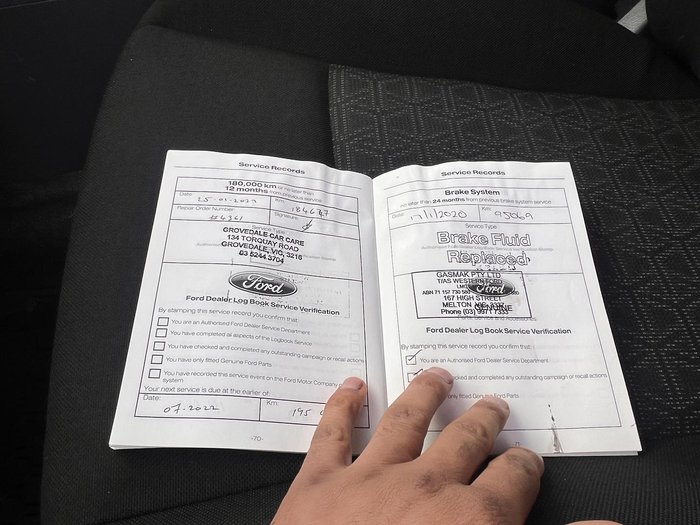 Service Records
180,000 km or no later than
12 months from previous service
Date: Km:
184647
Repair Order Number: Signature:
Service Type
GROVEDALE CAR CARE
134 TORQUAY ROAD
GROVEDALE, VIC, 3216
03 5244 3704
Ford
Ford Dealer Log Book Service Verification
By stamping this service record you confirm that:
You are an Authorised Ford Dealer Service Department
You have completed all aspects of the Logbook Service
You have checked and completed any outstanding campaign or recall actions
You have only fitted Genuine Ford Parts
You have recorded this service event on the Ford Motor Company
system
Your next service is due at the earlier of:
Date: Km:
07-2022 195
-70-
Service Records
Brake System
no later than 24 months from previous brake system service
Date: 17/1/2020 Km: 95069
Service Type
Brake Fluid
Replaced
GASMAK PTY LTD
T/AS WESTERN FORD
Ford
167 HIGH STREET
MELTON VIC 3337
GENUINE
Phone (03) 9971 7333
Service and Accessories
Ford Dealer Log Book Service Verification
By stamping this service record you confirm that:
You are an Authorised Ford Dealer Service Department
checked and completed any outstanding campaign or recall actions
only fitted Genuine Ford Parts